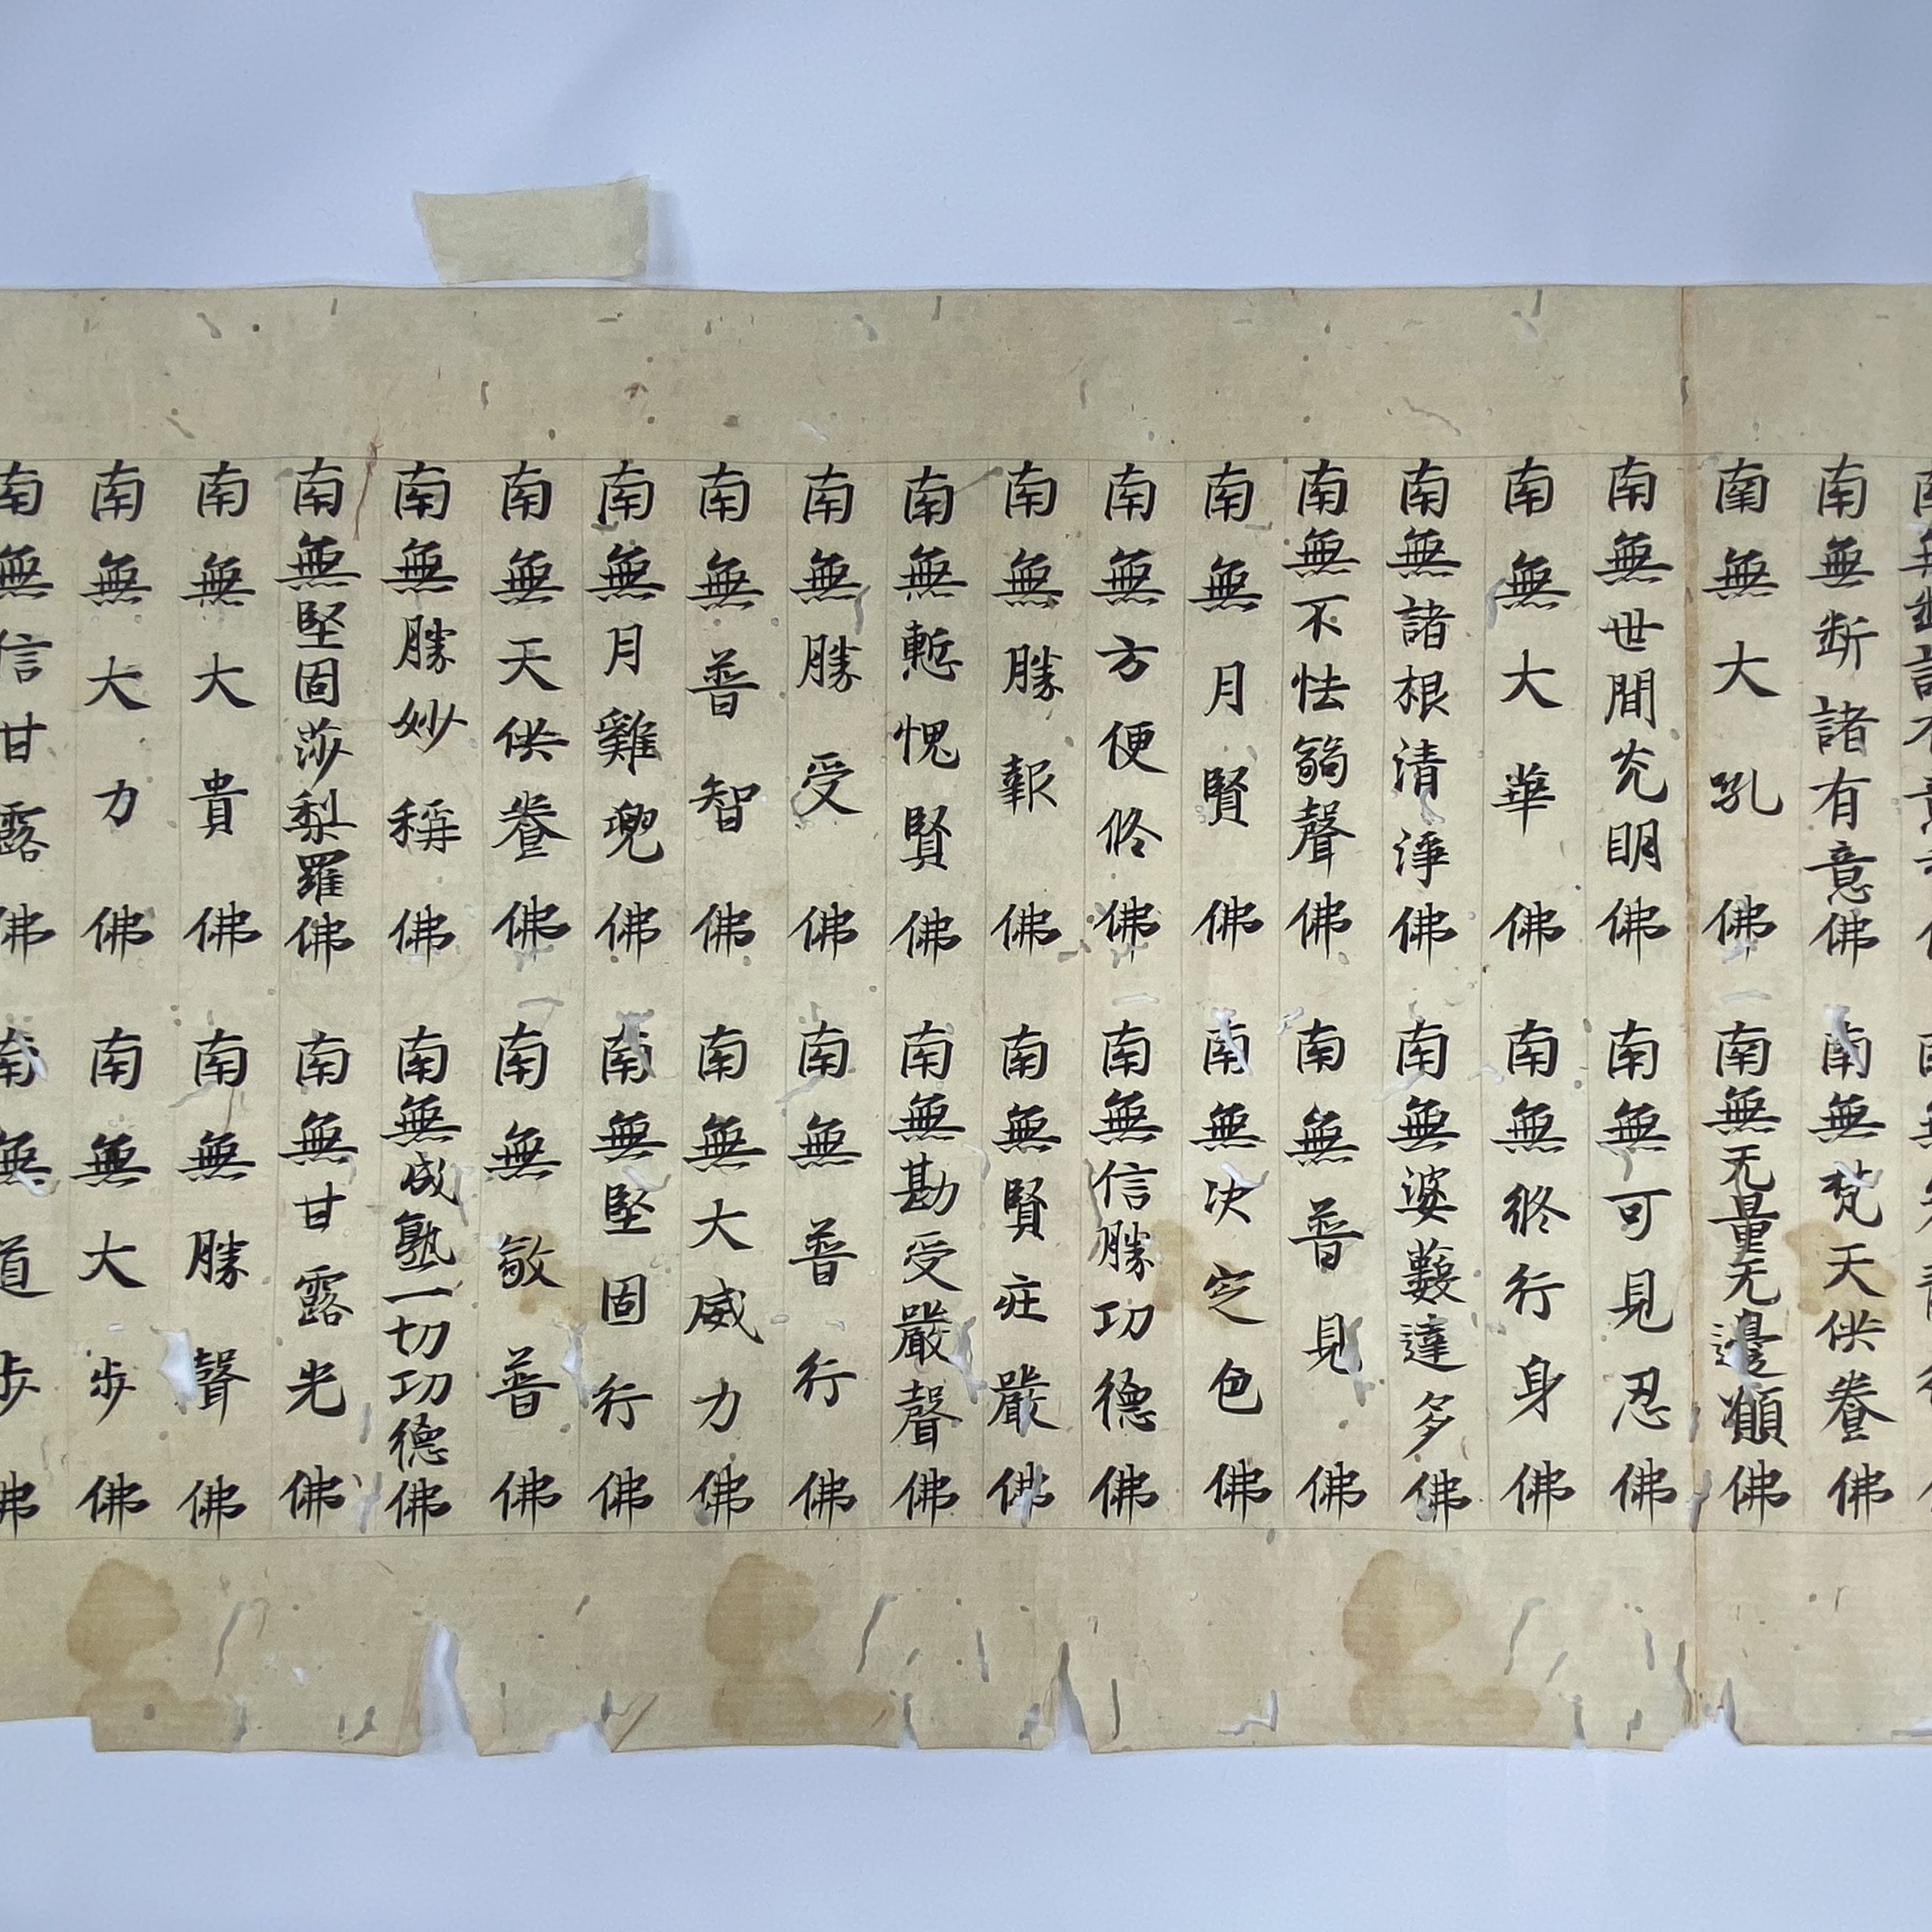 南無断諸有意佛 南無梵天供養佛
南無大吼佛 南無无量无邊願佛
南無世間光明佛 南無可見忍佛
南無大華佛 南無終行身佛
南無諸根清淨佛 南無婆藪達多佛
南無不怯弱聲佛 南無普見佛
南無月賢佛 南無决定色佛
南無方便修佛 南無信勝功德佛
南無勝報佛 南無賢庄嚴佛
南無慙愧賢佛 南無勘受嚴聲佛
南無勝受佛 南無普行佛
南無普智佛 南無大威力佛
南無月雞兜佛 南無堅固行佛
南無天供養佛 南無敬普佛
南無勝妙稱佛 南無成熟一切功德佛
南無堅固莎梨羅佛 南無甘露光佛
南無大貴佛 南無勝聲佛
南無大力佛 南無大步佛
南無信甘露佛 南無道步佛